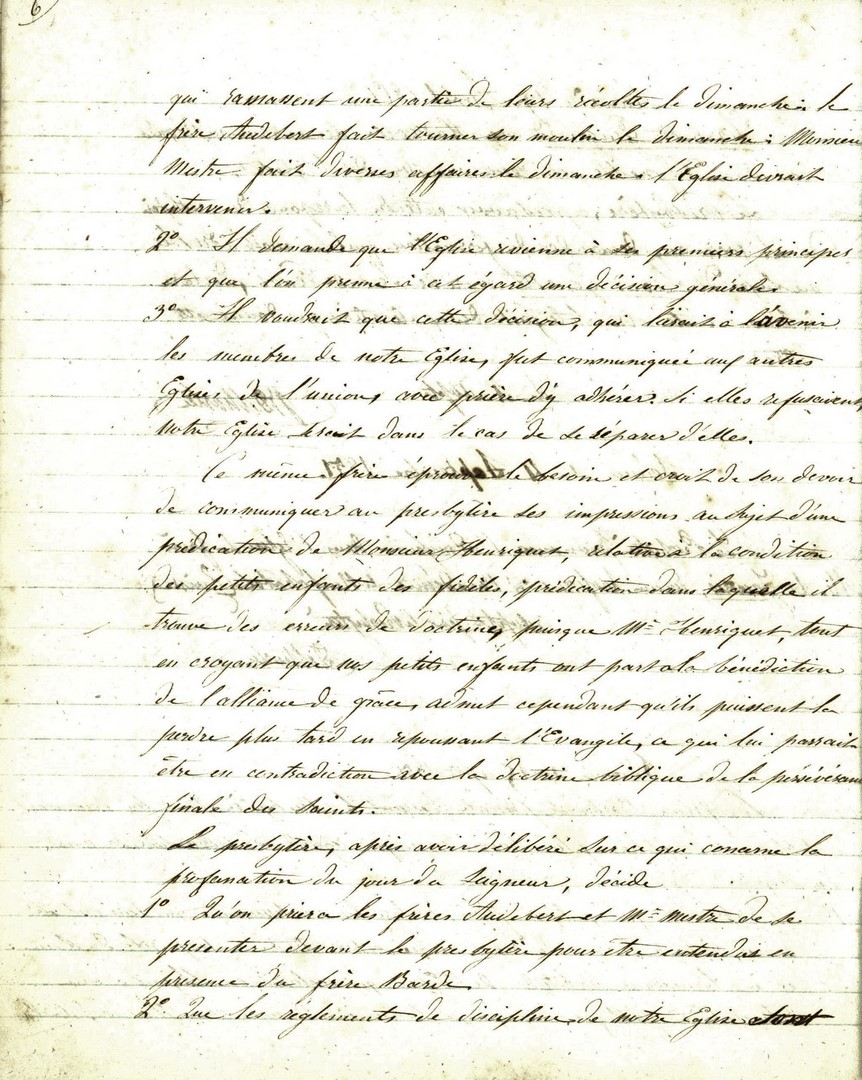 6
qui ramassent une partie de leurs récoltes le dimanche : le
frère Audebert fait tourner son moulin le dimanche : Monsieur
Mestre fait diverses affaires le dimanche. l'Eglise devrait
intervenir.
2º Il demande que l'Eglise revienne à ses premiers principes
et que l'on prenne à cet égard une décision générale.
3º Il voudrait que cette décision, qui lierait à l'avenir
les membres de notre Eglise, fut communiquée aux autres
Eglises de l'union, avec prière d'y adhérer. Si elles refusaient
notre Eglise serait dans le cas de se séparer d'elles.
Ce même frère éprouve le besoin et croit de son devoir
de communiquer au presbytère ses impressions au sujet d'une
prédication de Monsieur Henriquet, relative à la condition
des petits enfants des fidèles, prédication dans laquelle il
trouve des erreurs de doctrine, puisque Mr Henriquet, tout
en croyant que nos petits enfants ont part à la bénédiction
de l'alliance de grâce, admet cependant qu'ils puissent la
perdre plus tard en repoussant l'Evangile, ce qui lui parrait
être en contradiction avec la doctrine biblique de la persévérance
finale des Saints.
Le presbytère, après avoir délibéré sur ce qui concerne la
profanation du jour du Seigneur, décide
1º Qu'on priera les frères Audebert et Mr Mestre de se
presenter devant le presbytère pour être entendus en
presence du frère Barde
2º Que les réglements de discipline de notre Eglise